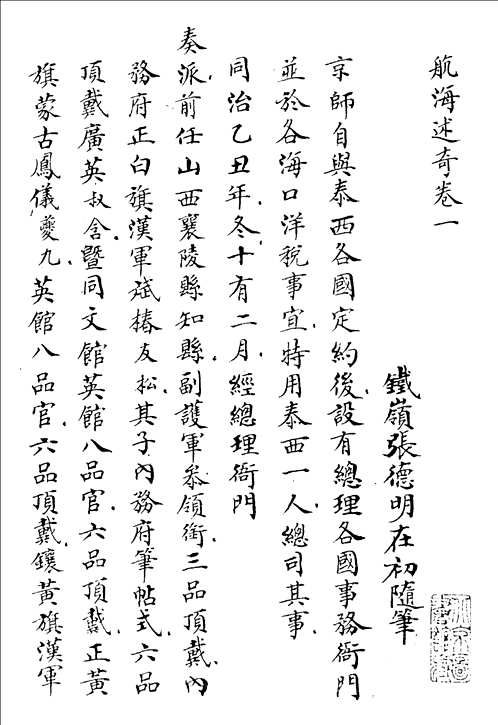 航海述奇卷一
鐵嶺張德明在初隨筆
京師自與泰西各國定約後設有總理各國事務衙門
並於各海口洋稅事宜特用泰西一人總司其事
同治乙丑年冬十有二月經總理衙門
奏派前任山西襄陵縣知縣副護軍叅領銜三品頂戴內
務府正白旗漢軍斌椿友松其子內務府筆帖式六品
頂戴廣英叔含曁同文館英館八品官六品頂戴正黃
旗蒙古鳳儀夔九英館八品官六品頂戴鑲黃旗漢軍